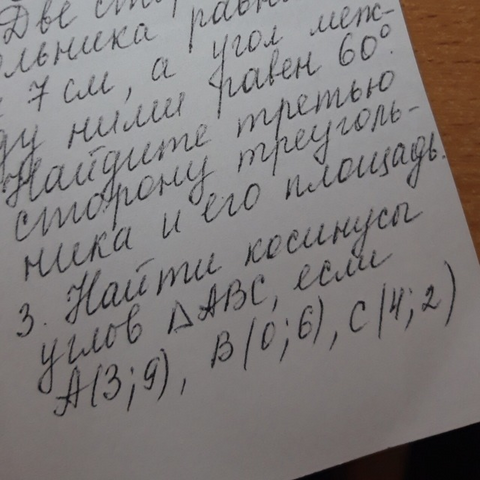 Две
7 см, а угол меж-
ду ними равен 60°.
Найдите третью
сторону треуголь-
ника и его площадь.
3. Найти косинусы
углов △ABC, если
A(3;9), B(0;6), C(4;2)